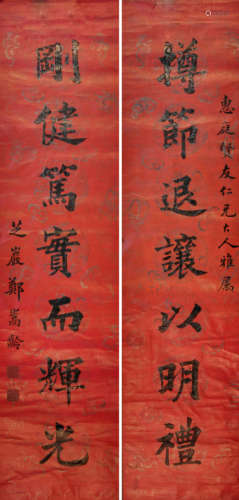 惠庭賢友仁兄大人雅屬
撙節退讓以明禮
剛健篤實而輝光
芝巖鄭嵩齡